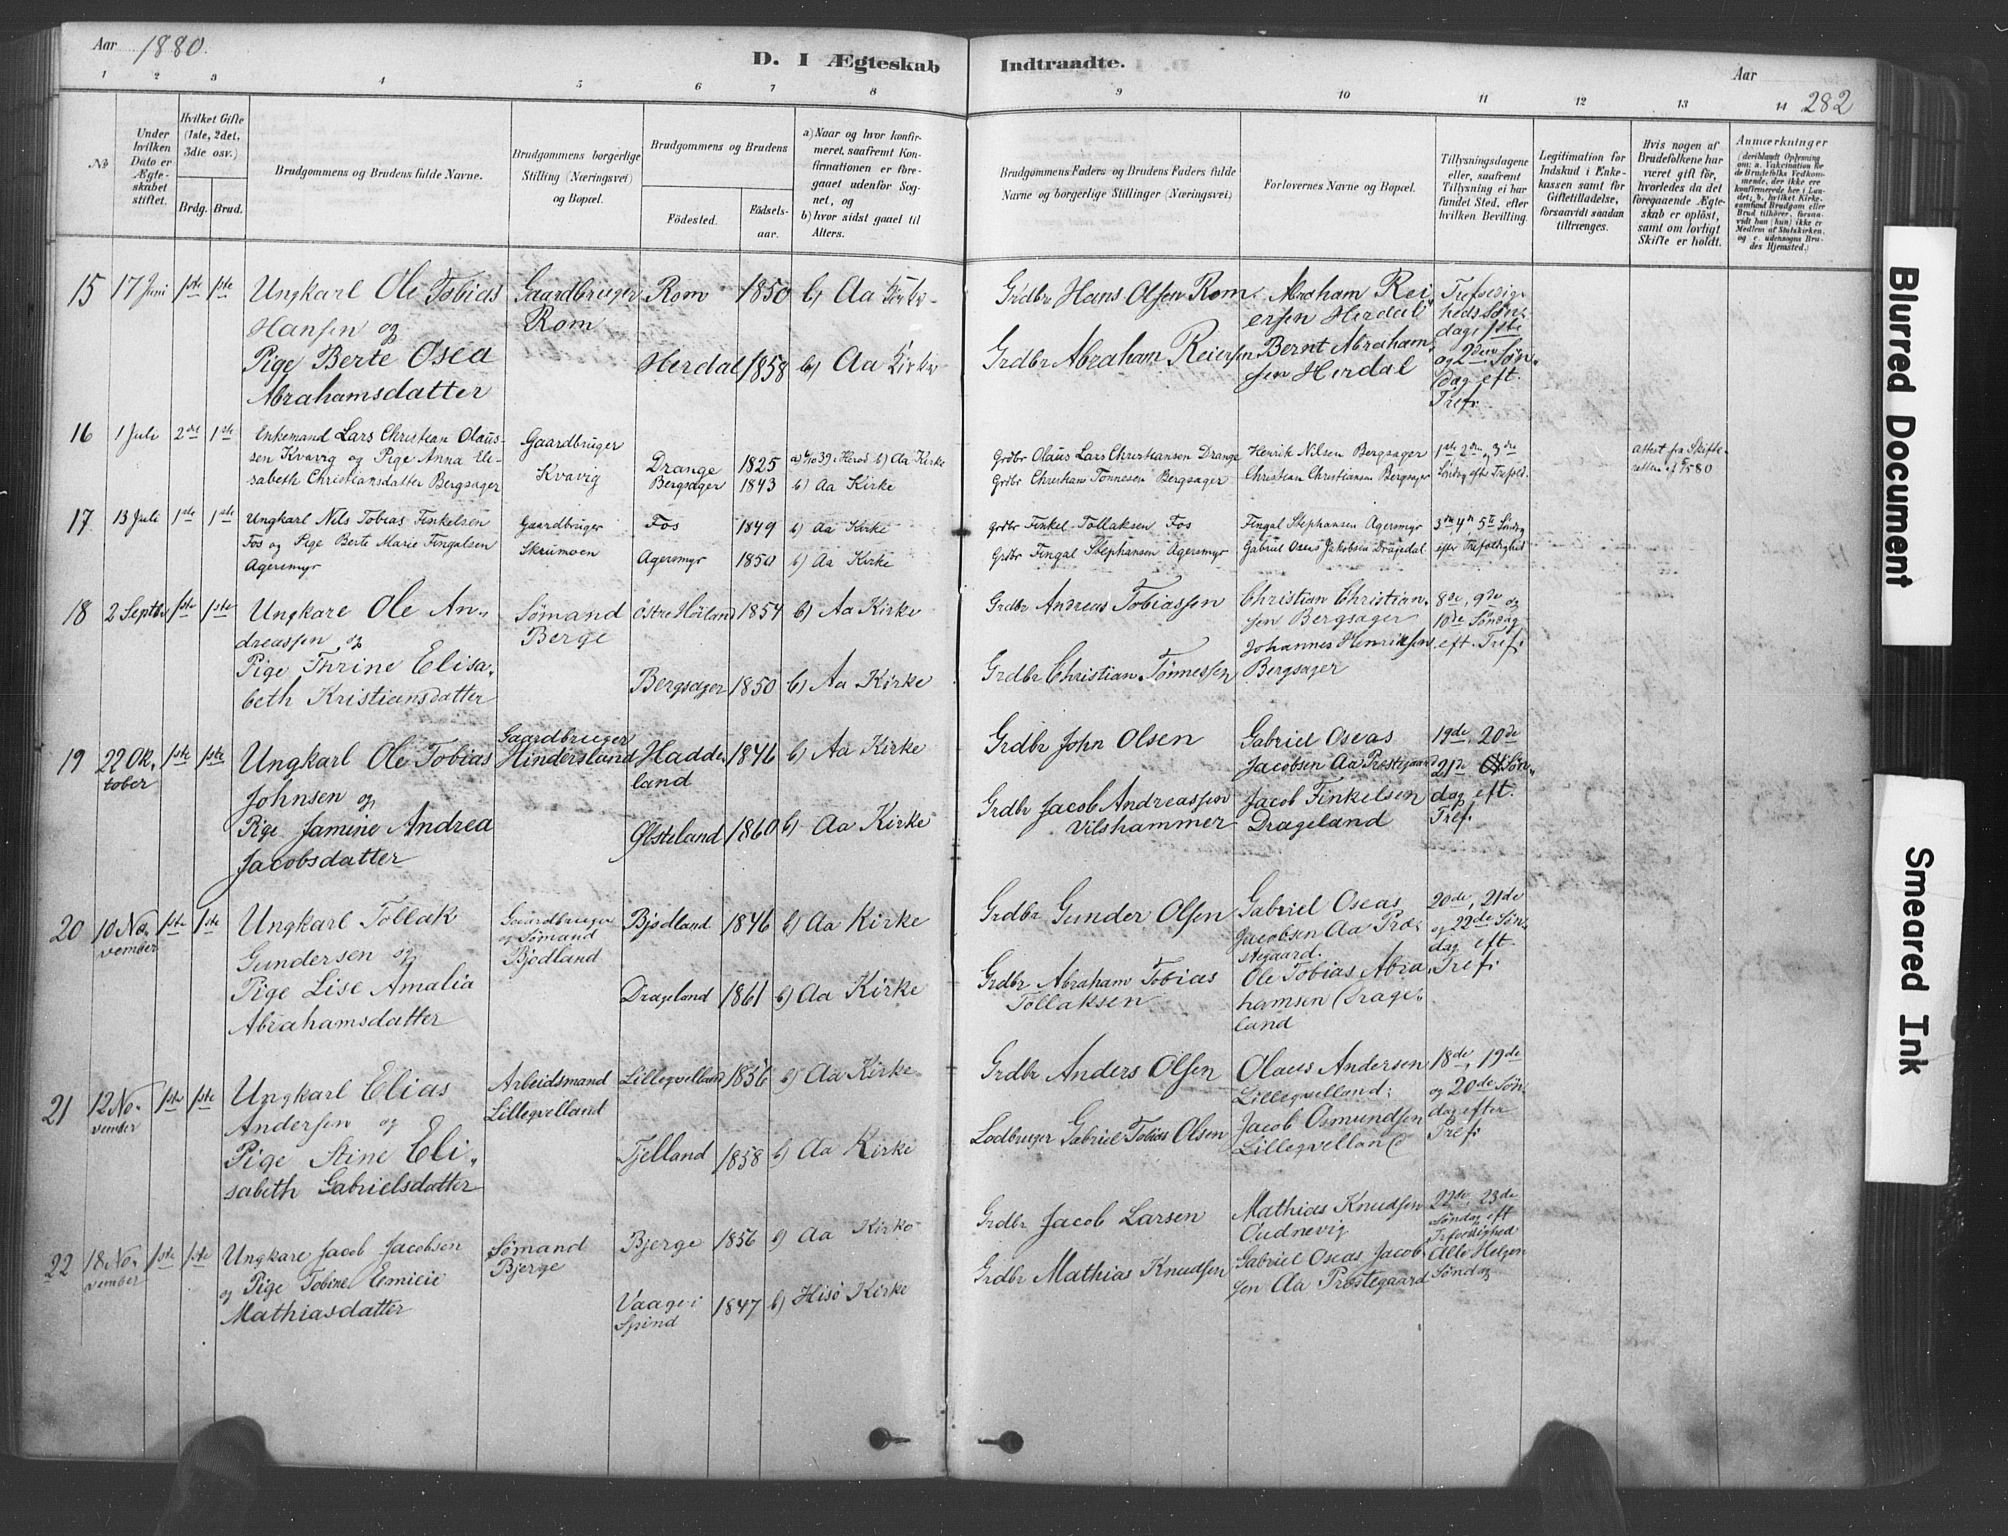 Aar 1880.
D. I Ægteskab Indtraadte.
Aar
282
1 2 3 4 5 6 7 8 9 10 11 12 13 14
No
Under hvilken Dato er Ægteskabet stiftet.
Hvilket Gifte (1ste, 2det, 3die osv.)
Brdg. Brud.
Brudgommens og Brudens fulde Navne.
Brudgommens borgerlige Stilling (Næringsvei) og Bopæl.
Brudgommens og Brudens
Födested.
Födsels-aar.
a) Naar og hvor konfirmeret, saafremt Konfirmationen er foregaaet udenfor Sognet, og
b) hvor sidst gaaet til Alters.
Brudgommens Faders og Brudens Faders fulde Navne og borgerlige Stillinger (Næringsvei)
Forlovernes Navne og Bopæl.
Tillysningsdagene eller, saafremt Tillysning ei har fundet Sted, efter hvilken Bevilling.
Legitimation for Indskud i Enkekassen samt for Giftetilladelse, forsaavidt saadan tiltrænges.
Hvis nogen af Brudefolkene har været gift för, hvorledes da det foregaaende Ægteskab er oplöst, samt om lovligt Skifte er holdt.
Anmærkninger
15 17 Juni 1ste 1ste Ungkarl Ole Tobias Gaardbruger Rom 1850 b) Aa Kirke Grdbr Hans Olsen Rom. Abraham Rei- Trefoldig-
Hansen og Rom ersen Herdal heds Søn-
dag 1ste
Pige Berte Osea Herdal 1858 b) Aa Kirke Grdbr Abraham Reiersen Bernt Abraham- og 2den Søn-
Abrahamsdatter sen Herdal dag eft.
Tref.
16 1 Juli 2det 1ste Enkemand Lars Christian Olaus- Gaardbruger Drange 1825 b) Aa Kirke Grdbr Olaus Lars Christiansen Drange Henrik Nilsen Bergsager 1ste 2den 3die
sen Kvavig og Pige Anna Eli- Kvavig Bergsager 1843 b) Aa Kirke Grdbr Christian Tønnesen Bergsager Christian Christiansen Bergsager Søndag eft Trefold. Attest fra Skifte-
sabeth Christiansdatter Bergsager
17. 13 Juli 1ste 1ste Ungkarl Nils Tobias Finkelsen Gaardbruger Fos 1849 b) Aa Kirke Grdbr Finkel Tollaksen Fos Fingal Stephansen Agersmyr 3die 4de 5te Søndag
Fos og Pige Berte Marie Fingalsen Skrumoen Agersmyr 1850 b) Aa Kirke Grdbr Fingal Stephansen Agersmyr Gabriel Oseas Jakobsen Dragedal efter Trefoldighed
Agersmyr
18 2 Septbr 1ste 1ste Ungkare Ole An- Sømand Østre Høiland 1854 b) Aa Kirke Grdbr Andreas Tobiassen Christian Christian- 8de, 9de og
dreassen og Berge sen Bergsager 10de Søndag
Pige Thrine Elisa- Bergsager 1850 b) Aa Kirke Grdbr Christian Tønnessen Johannes Henriksen eft. Tref.
beth Kristiansdatter Bergsager
19 22 Ok- 1ste 1ste Ungkarl Ole Tobias Gaardbruger Hadde- 1846 b) Aa Kirke Grdbr John Olsen Gabriel Oseas 19de, 20de
tober Johnsen og Hindersland land Jacobsen Aa Prestegaard 21de Søn-
Pige Jamine Andrea Østeland 1860 b) Aa Kirke Grdbr Jacob Andreassen Jacob Finkelsen dag eft.
Jacobsdatter Vilshammer Drageland Tref.
20 10 No- 1ste 1ste Ungkarl Tollak Gaardbruger Bjødland 1846 b) Aa Kirke Grdbr Gunder Olsen Gabriel Oseas 20de, 21de
vember Gundersen og og Sømand Jacobsen Aa Præ- og 22de Søn-
Bjødland stegaard. dag eft.
Pige Lise Amalia Drageland 1861 b) Aa Kirke Grdbr Abraham Tobias Ole Tobias Abra- Tref.
Abrahamsdatter Tollaksen hamsen Drage-
land
21 12 No- 1ste 1ste Ungkarl Elias Arbeidsmand Lilleqvelland 1856 b) Aa Kirke Grdbr Anders Olsen Olaus Andersen 18de, 19de
vember Andersen og Lilleqvelland Lilleqvelland; og 20de Søn-
Pige Stine Eli- Fjelland 1858 b) Aa Kirke Lodbruger Gabriel Tobias Olsen Jacob Osmundsen dag efter
sabeth Gabrielsdatter Lilleqvelland Tref.
22 18 No- 1ste 1ste Ungkare Jacob Jacobsen Sømand Bjerge 1856 b) Aa Kirke Grdbr Jacob Larsen Mathias Knudsen 22de, 23de
vember og Pige Tobine Emilie Bjerge Oudnevig Søndag eft
Trefoldighed
Mathiasdatter Vaage i 1847 b) Hisø Kirke Grdbr Mathias Knudsen Gabriel Oseas Jacob- Alle Helgen
Spind sen Aa Prestegaard Søndag
Blurred Document
Smeared Ink